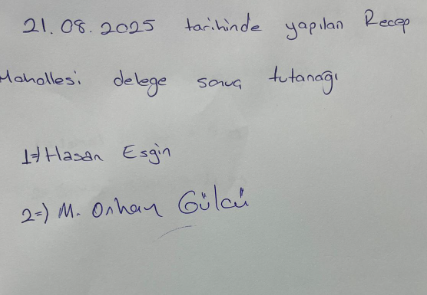 21.08.2025 tarihinde yapılan Recep
Mahallesi delege sonuç tutanağı
1=) Hasan Esgin
2=) M. Orhan Gülcü